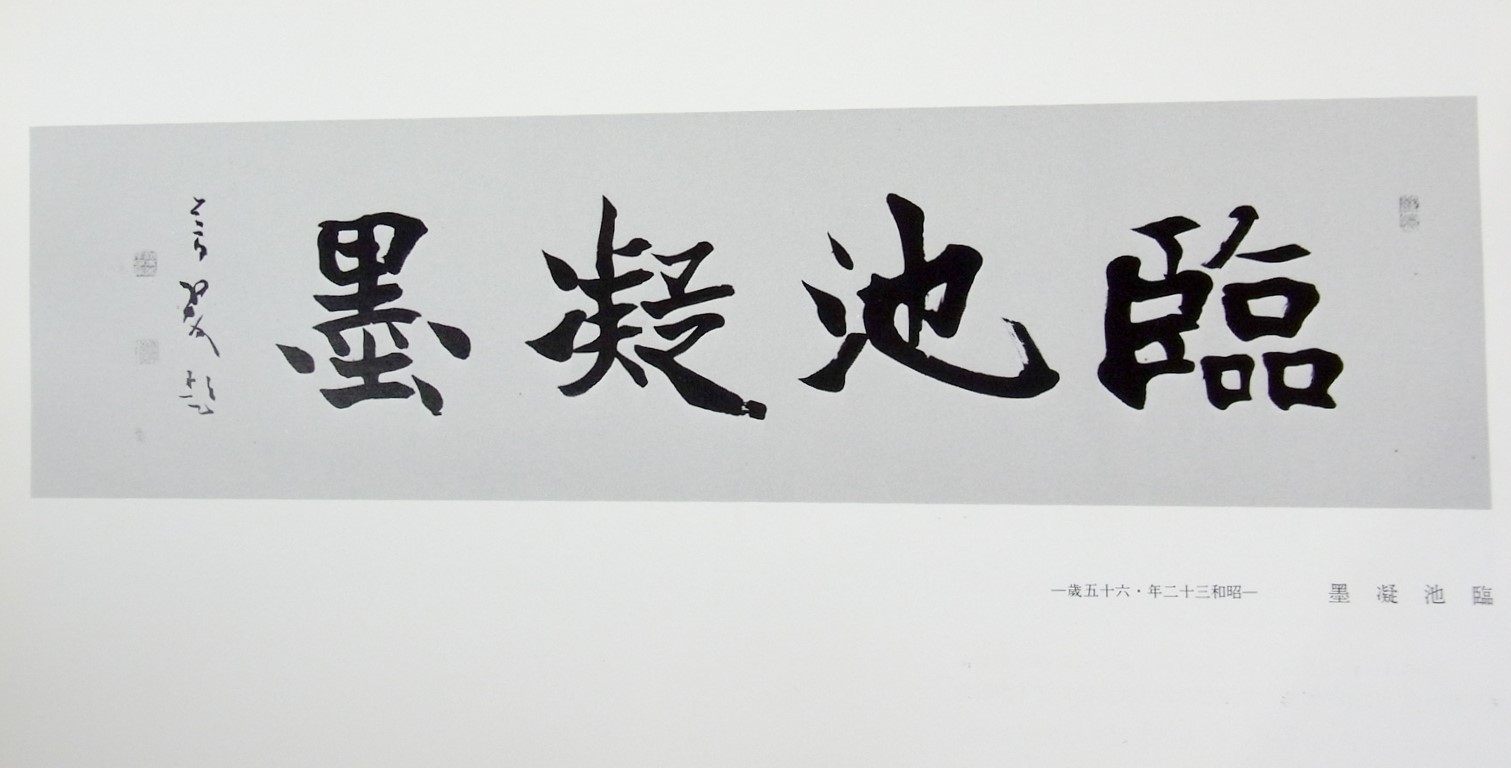 臨池凝墨
芳翠題
臨池凝墨 —昭和三十二年・六十五歳—